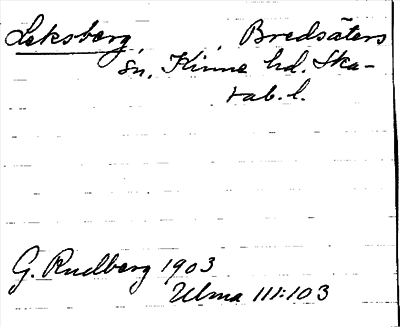 Leksberg, Bredsäters
sn, Kinne hd. Ska-
rab. l.
G. Rudberg 1903
Ulma 111:103